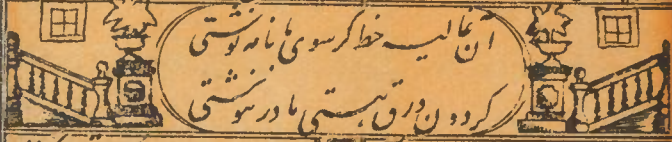 آن غالیه خط گر سوی ما نامه نوشتی
گردون ورق هستی ما در ننوشتی